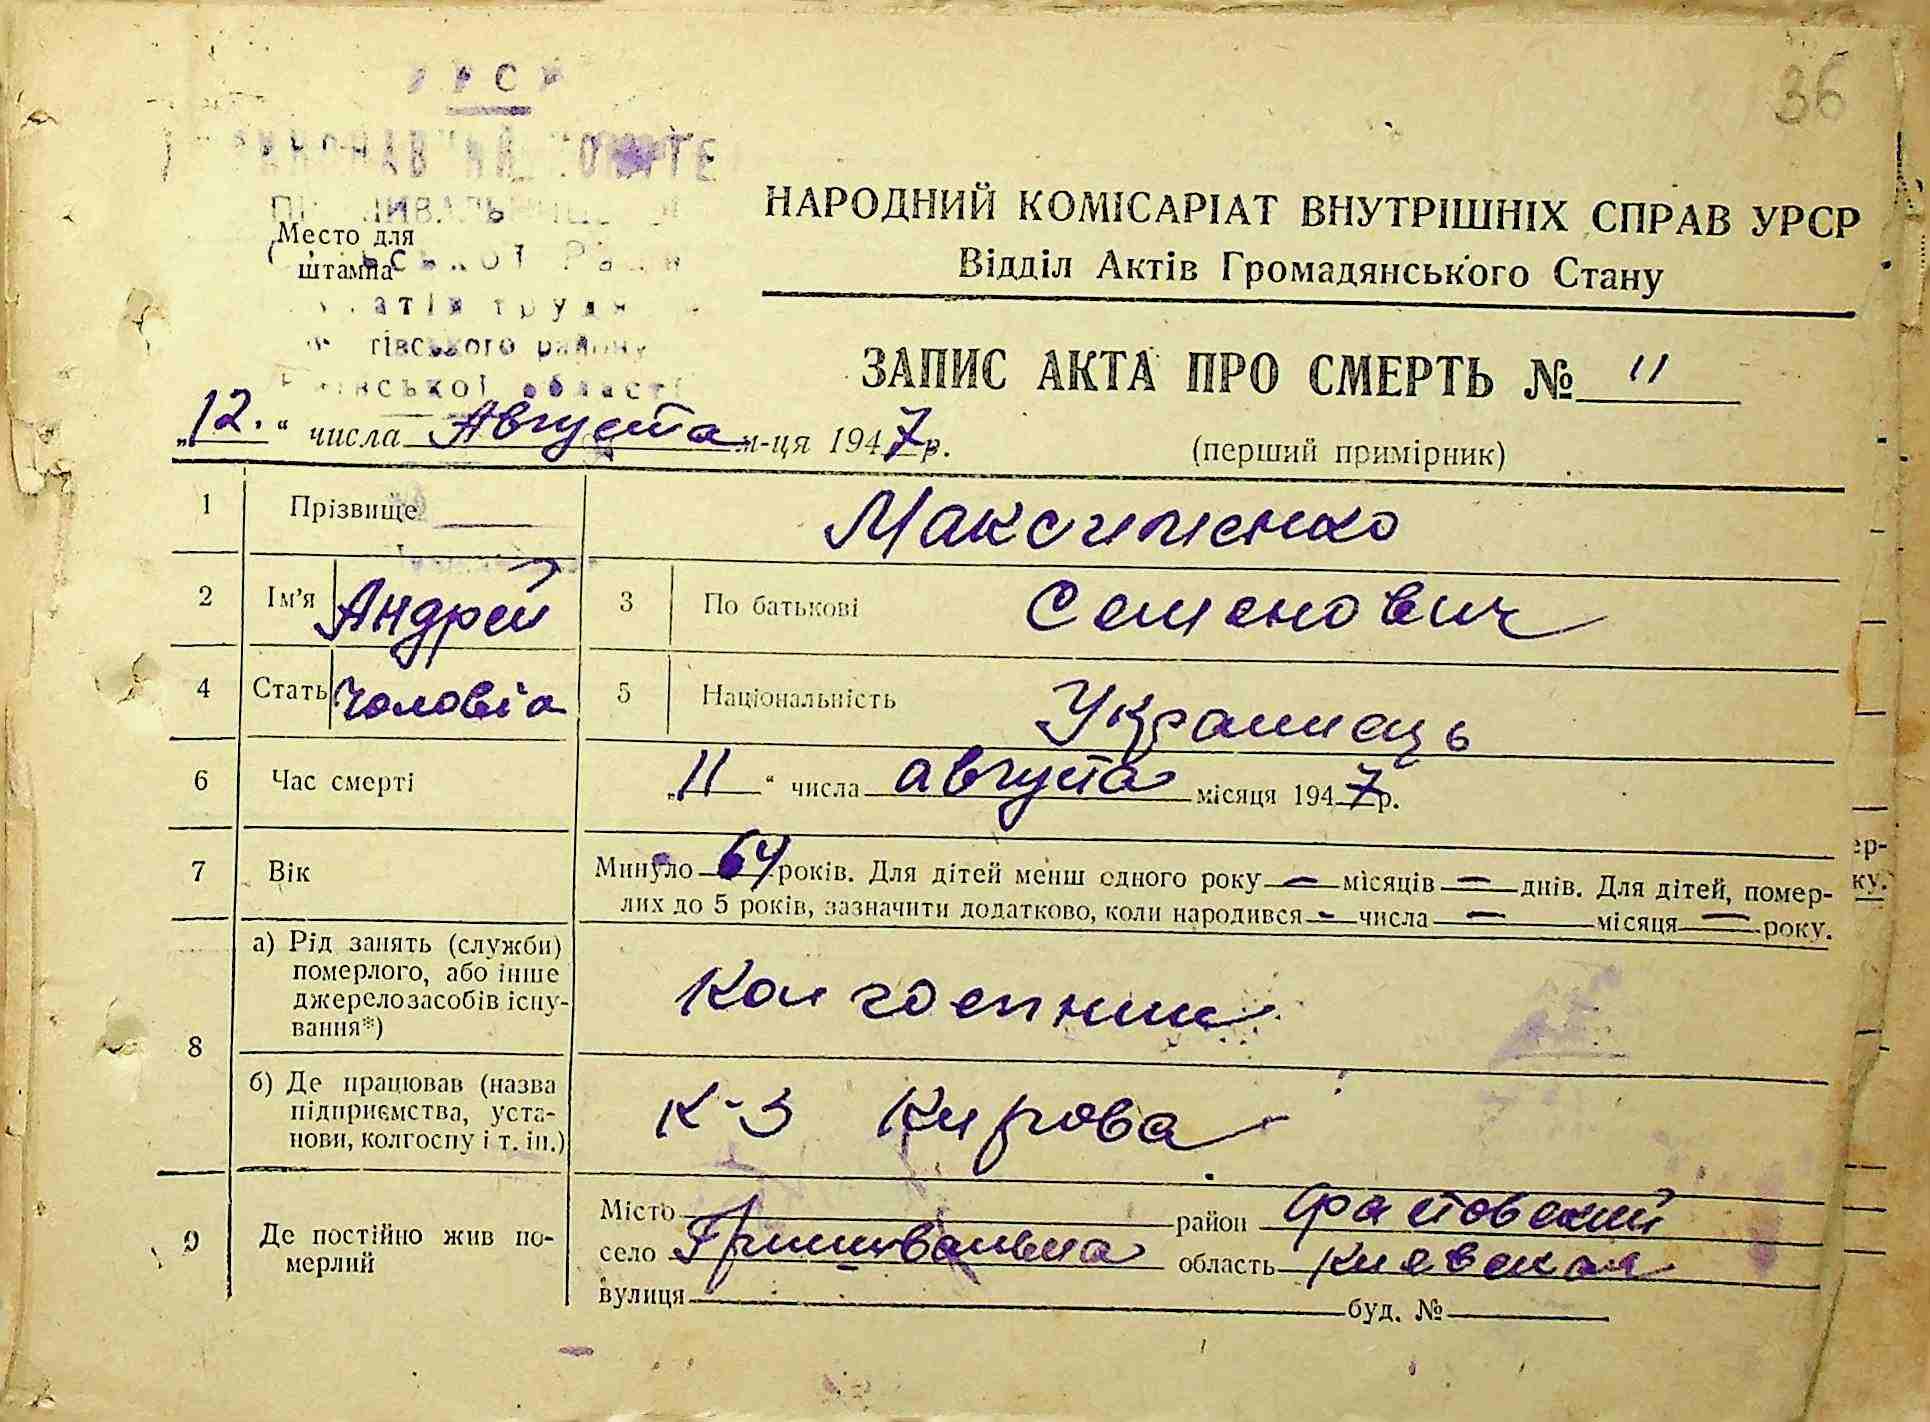 36
Место для
штампа
НАРОДНИЙ КОМІСАРІАТ ВНУТРІШНІХ СПРАВ УРСР
Відділ Актів Громадянського Стану
ЗАПИС АКТА ПРО СМЕРТЬ № 11
„12.“ числа Августа м-ця 1947р.
(перший примірник)
1 Прізвище Максименко
2 Ім'я Андрей 3 По батькові Семенович
4 Стать 5 Національність Украинець
6 Час смерті „11“ числа августа місяця 1947р.
7 Вік Минуло 64 років. Для дітей менш одного року — місяців — днів. Для дітей, помер-
лих до 5 років, зазначити додатково, коли народився - числа — місяця — року.
8 а) Рід занять (служби)
померлого, або інше
джерело засобів існу-
вання*)
Колгоспник
б) Де працював (назва
підприємства, уста-
нови, колгоспу і т. ін.)
К-з Кирова
9 Де постійно жив по-
мерлий
Місто район Фастовский
село область Киевская
вулиця буд. №
ер-
ку.